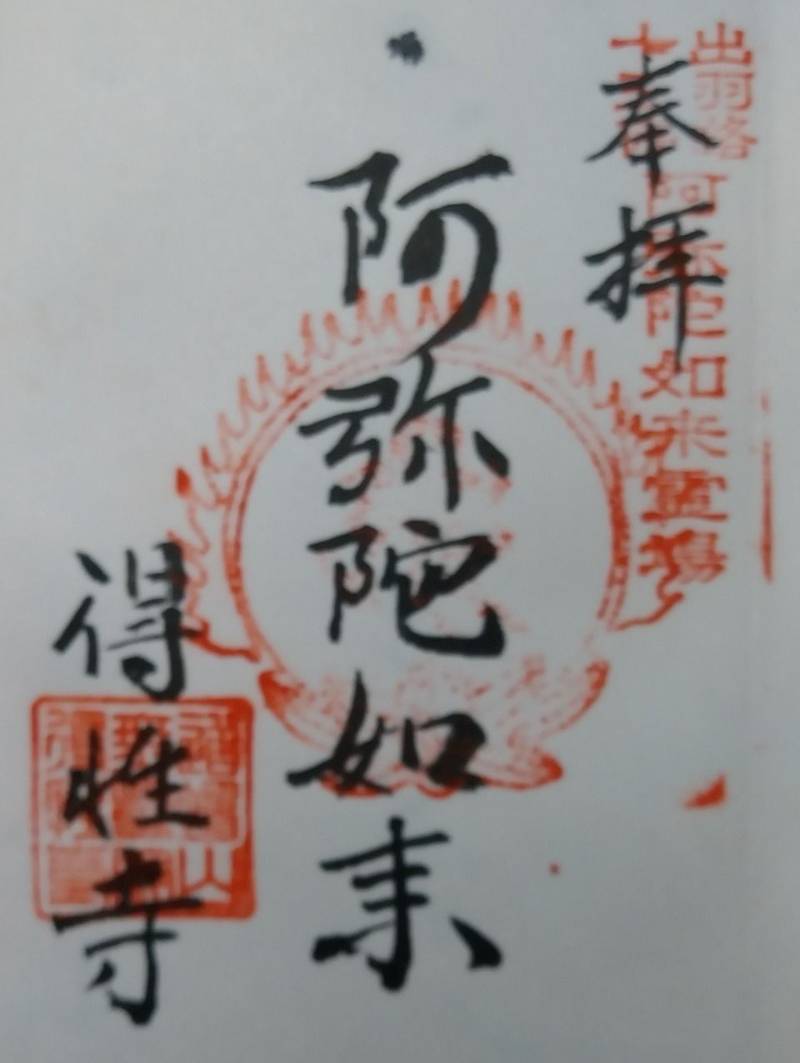 出羽路
阿弥陀如来霊場
奉拝
阿弥陀如来
得性寺